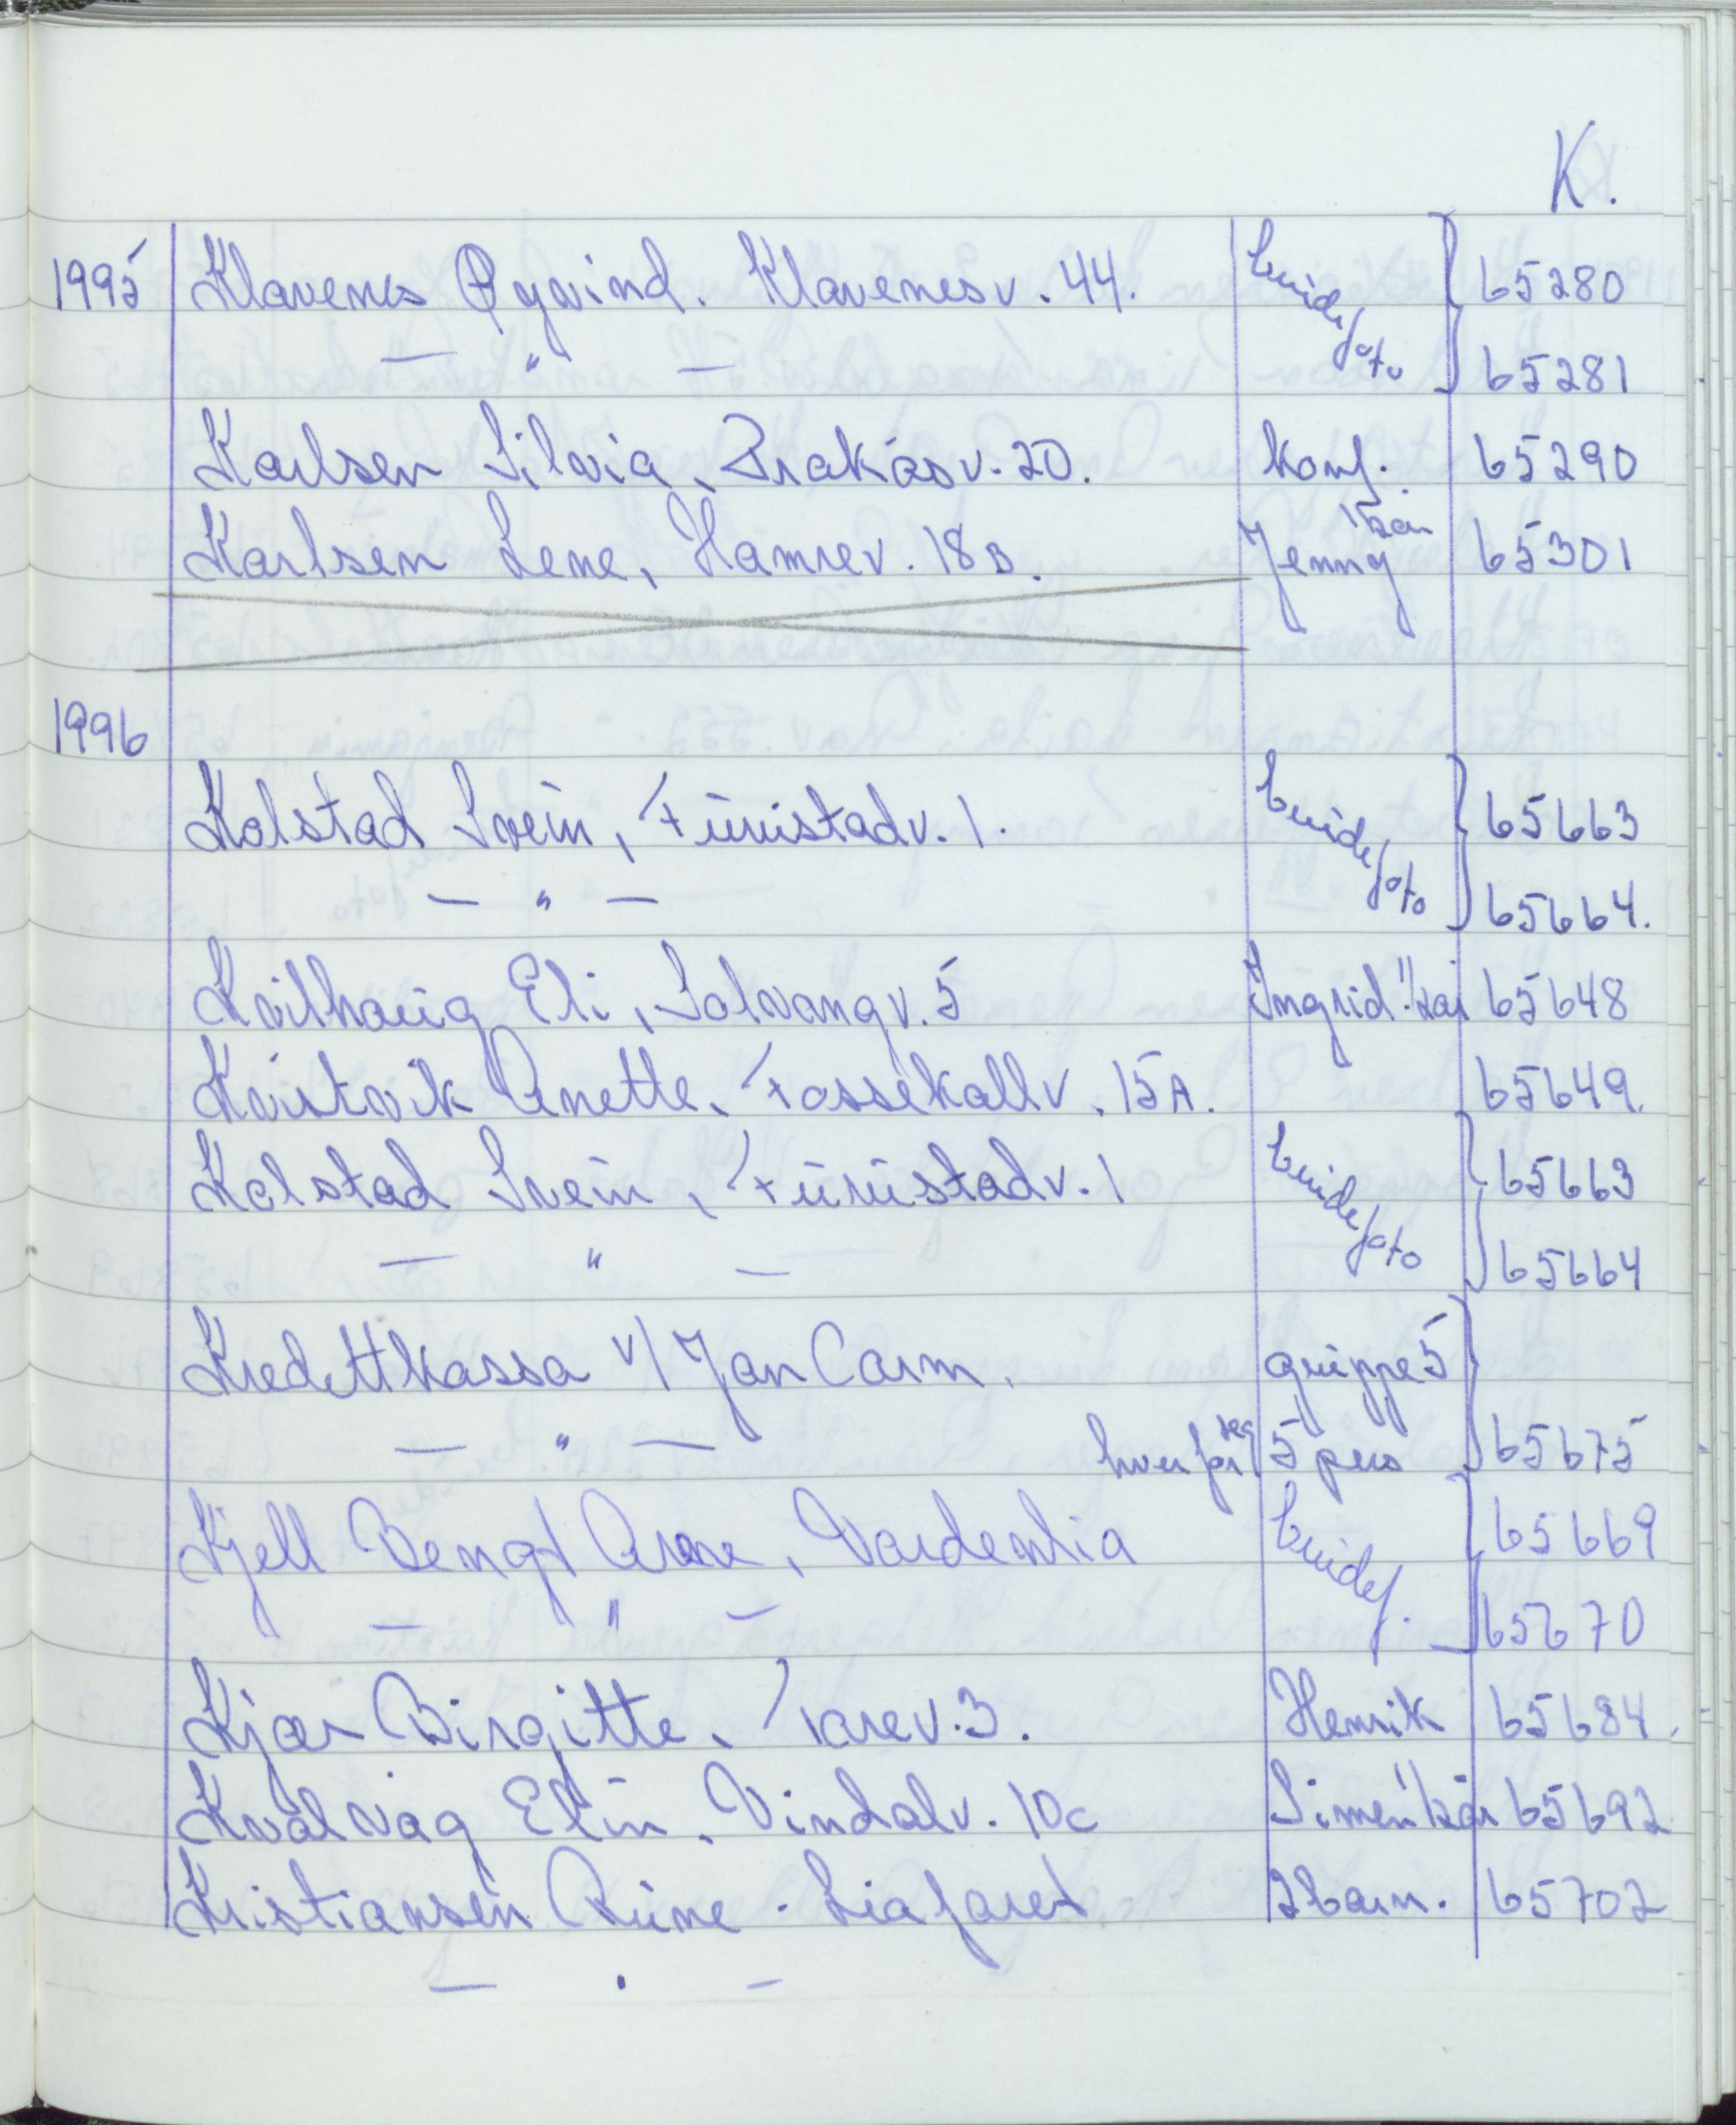 K.
1995 Klavenes Øyvind. Klavenesv. 44. brudefoto 65280
— " — 65281
Karlsen Silvia, Brakåsv. 20. konf. 65290
Karlsen Lene, Hamrev. 18B. Jenny 1/2 år 65301
1996
Kolstad Svein, Furustadv. 1. brudefoto 65663
— " — 65664.
Kvilhaug Eli, Solvangv. 5 Ingrid 65648
Kvistvik Anette, Fossekallv. 15A. 65649.
Kolstad Svein, Furustadv. 1 brudefoto 65663
— " — 65664
Kredittkassa v/ Jan Carm. gruppe 5
— " — hver for seg 5 pers 65675
Kjell Bengt Arne, Vardenlia brudef. 65669
— " — 65670
Kjær Birgitte, 3. Henrik 65684.
Kvalvåg Elin, Vindalv. 10c Simen 65692
Kristiansen Rune. Liafaret 2 barn. 65702
— . —